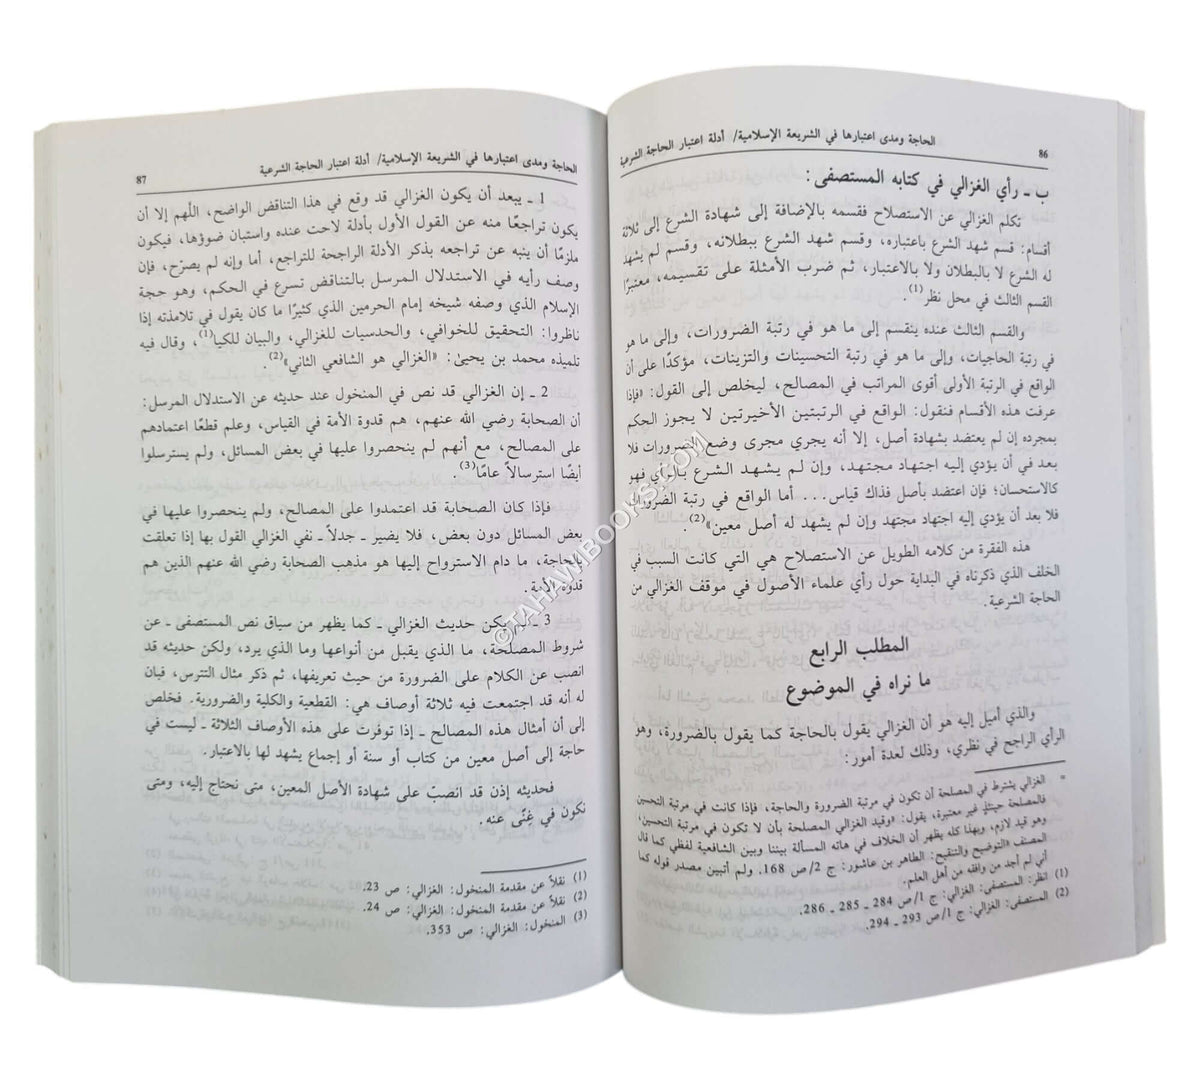 86
الحاجة ومدى اعتبارها في الشريعة الإسلامية/ أدلة اعتبار الحاجة الشرعية
ب ـ رأي الغزالي في كتابه المستصفى:
تكلم الغزالي عن الاستصلاح فقسمه بالإضافة إلى شهادة الشرع إلى ثلاثة
أقسام: قسم شهد الشرع باعتباره، وقسم شهد الشرع ببطلانه، وقسم لم يشهد
له الشرع لا بالبطلان ولا بالاعتبار، ثم ضرب الأمثلة على تقسيمه، معتبرًا
القسم الثالث في محل نظر(1).
والقسم الثالث عنده ينقسم إلى ما هو في رتبة الضرورات، وإلى ما هو
في رتبة الحاجيات، وإلى ما هو في رتبة التحسينات والتزينات، مؤكدًا على أن
الواقع في الرتبة الأولى أقوى المراتب في المصالح، ليخلص إلى القول: «فإذا
عرفت هذه الأقسام فنقول: الواقع في الرتبتين الأخيرتين لا يجوز الحكم
بمجرده إن لم يعتضد بشهادة أصل، إلا أنه يجري مجرى وضع الضرورات فلا
بعد في أن يؤدي إليه اجتهاد مجتهد، وإن لم يشهد الشرع بالرأي فهو
كالاستحسان؛ فإن اعتضد بأصل فذاك قياس... أما الواقع في رتبة الضرورات
فلا بعد أن يؤدي إليه اجتهاد مجتهد وإن لم يشهد له أصل معين»(2).
هذه الفقرة من كلامه الطويل عن الاستصلاح هي التي كانت السبب في
الخلف الذي ذكرناه في البداية حول رأي علماء الأصول في موقف الغزالي من
الحاجة الشرعية.
المطلب الرابع
ما نراه في الموضوع
والذي أميل إليه هو أن الغزالي يقول بالحاجة كما يقول بالضرورة، وهو
الرأي الراجح في نظري، وذلك لعدة أمور:
= الغزالي يشترط في المصلحة أن تكون في مرتبة الضرورة والحاجة، فإذا كانت في مرتبة التحسين
فالمصلحة حينئذٍ غير معتبرة، يقول: «وقيد الغزالي المصلحة بأن لا تكون في مرتبة التحسين،
وهو قيد لازم، وبهذا كله يظهر أن الخلاف في هاته المسألة بيننا وبين الشافعية لفظي كما قال
المصنف «التوضيح والتنقيح: الطاهر بن عاشور: ج 2/ص 168. ولم أتبين مصدر قوله كما
أني لم أجد من وافقه من أهل العلم.
(1) انظر: المستصفى: الغزالي: ج 1/ص 284 ـ 285 ـ 286.
(2) المستصفى: الغزالي: ج 1/ص 293 ـ 294.
الحاجة ومدى اعتبارها في الشريعة الإسلامية/ أدلة اعتبار الحاجة الشرعية
87
1 ـ يبعد أن يكون الغزالي قد وقع في هذا التناقض الواضح، اللّهم إلا أن
يكون تراجعًا منه عن القول الأول بأدلة لاحت عنده واستبان ضوؤها، فيكون
ملزمًا أن ينبه عن تراجعه بذكر الأدلة الراجحة للتراجع، أما وإنه لم يصرّح، فإن
وصف رأيه في الاستدلال المرسل بالتناقض تسرع في الحكم، وهو حجة
الإسلام الذي وصفه شيخه إمام الحرمين الذي كثيرًا ما كان يقول في تلامذته إذا
ناظروا: التحقيق للخوافي، والحدسيات للغزالي، والبيان للكيا(1)، وقال فيه
تلميذه محمد بن يحيىٰ: «الغزالي هو الشافعي الثاني»(2).
2 ـ إن الغزالي قد نص في المنخول عند حديثه عن الاستدلال المرسل:
أن الصحابة رضي الله عنهم، هم قدوة الأمة في القياس، وعلم قطعًا اعتمادهم
على المصالح، مع أنهم لم ينحصروا عليها في بعض المسائل، ولم يسترسلوا
أيضًا استرسالاً عامًا(3).
فإذا كان الصحابة قد اعتمدوا على المصالح، ولم ينحصروا عليها في
بعض المسائل دون بعض، فلا يضير ـ جدلاً ـ نفي الغزالي القول بها إذا تعلقت
بالحاجة، ما دام الاسترواح إليها هو مذهب الصحابة رضي الله عنهم الذين هم
قدوة الأمة.
3 ـ لم يكن حديث الغزالي ـ كما يظهر من سياق نص المستصفى ـ عن
شروط المصلحة، ما الذي يقبل من أنواعها وما الذي يرد، ولكن حديثه قد
انصب عن الكلام على الضرورة من حيث تعريفها، ثم ذكر مثال التترس، فبان
له أنه قد اجتمعت فيه ثلاثة أوصاف هي: القطعية والكلية والضرورية. فخلص
إلى أن أمثال هذه المصالح ـ إذا توفرت على هذه الأوصاف الثلاثة ـ ليست في
حاجة إلى أصل معين من كتاب أو سنة أو إجماع يشهد لها بالاعتبار.
فحديثه إذن قد انصبت على شهادة الأصل المعين، متى نحتاج إليه، ومتى
نكون في غِنًى عنه.
(1) نقلاً عن مقدمة المنخول: الغزالي: ص 23.
(2) نقلاً عن مقدمة المنخول: الغزالي: ص 24.
(3) المنخول: الغزالي: ص 353.
©TAHAWIBOOKS.COM